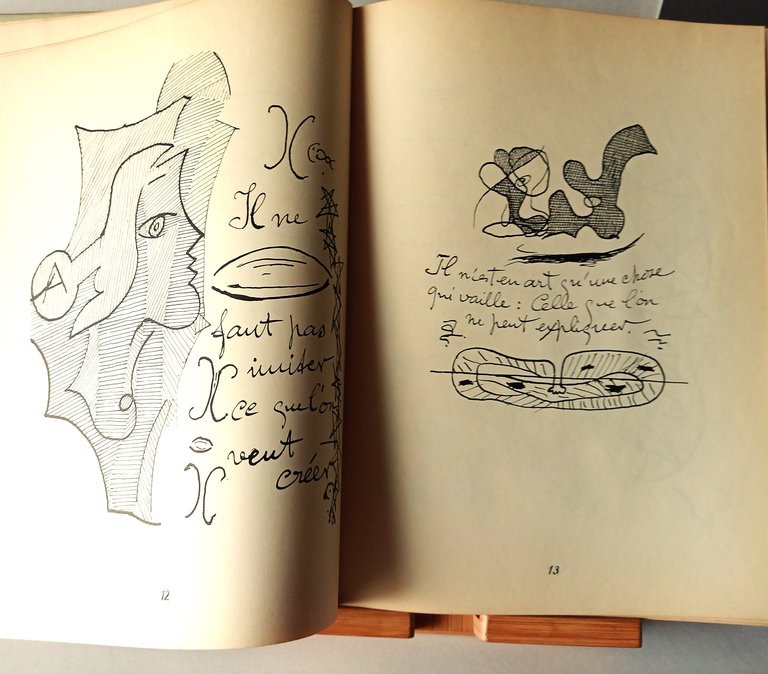 A
Il ne
faut pas
imiter
ce que l'on
veut
créer
12
Il n'est en art qu'une chose
qui vaille : Celle que l'on
ne peut expliquer.
13